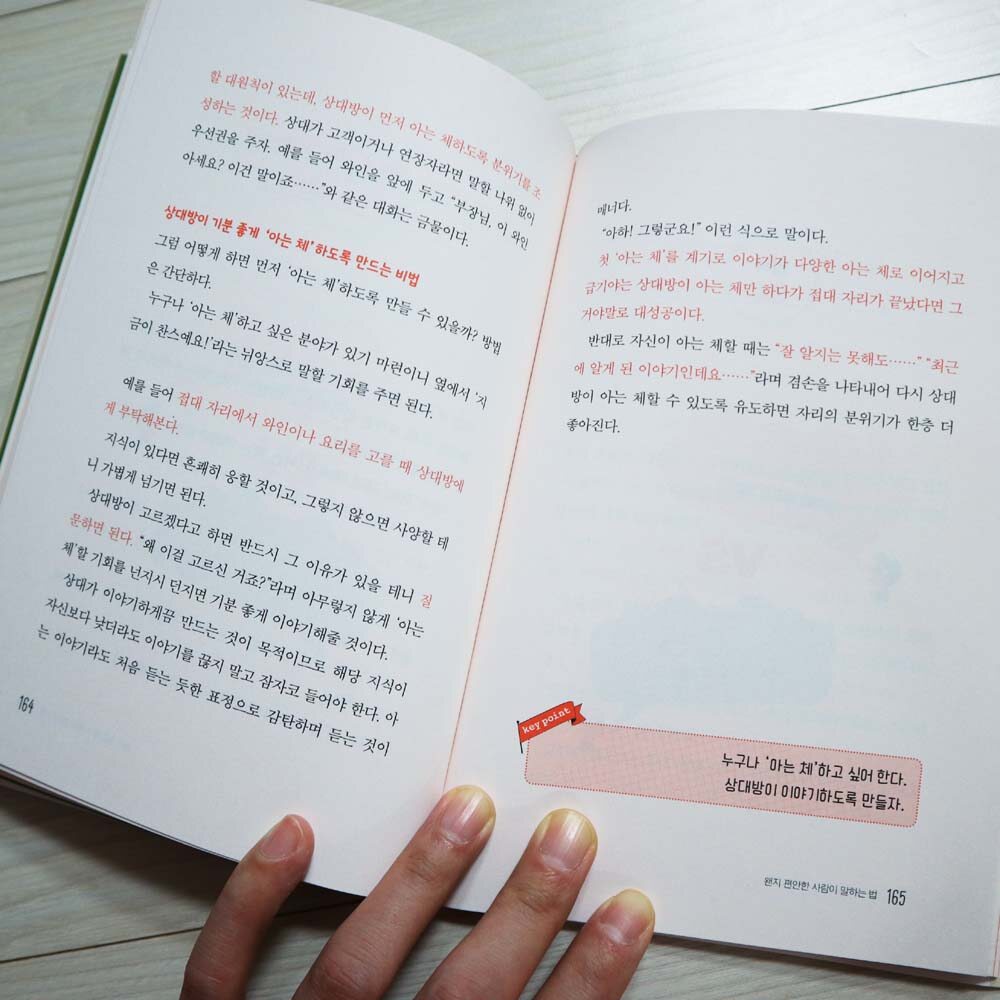 할 대원칙이 있는데, 상대방이 먼저 아는 체하도록 분위기를 조
성하는 것이다. 상대가 고객이거나 연장자라면 말할 나위 없이
우선권을 주자. 예를 들어 와인을 앞에 두고 “부장님, 이 와인
아세요? 이건 말이죠……”와 같은 대화는 금물이다.
상대방이 기분 좋게 ‘아는 체’하도록 만드는 비법
그럼 어떻게 하면 먼저 ‘아는 체’하도록 만들 수 있을까? 방법
은 간단하다.
누구나 ‘아는 체’하고 싶은 분야가 있기 마련이니 옆에서 ‘지
금이 찬스예요!’라는 뉘앙스로 말할 기회를 주면 된다.
예를 들어 접대 자리에서 와인이나 요리를 고를 때 상대방에
게 부탁해본다.
지식이 있다면 흔쾌히 응할 것이고, 그렇지 않으면 사양할 테
니 가볍게 넘기면 된다.
상대방이 고르겠다고 하면 반드시 그 이유가 있을 테니 질
문하면 된다. “왜 이걸 고르신 거죠?”라며 아무렇지 않게 ‘아는
체’할 기회를 넌지시 던지면 기분 좋게 이야기해줄 것이다.
상대가 이야기하게끔 만드는 것이 목적이므로 해당 지식이
자신보다 낮더라도 이야기를 끊지 말고 잠자코 들어야 한다. 아
는 이야기라도 처음 듣는 듯한 표정으로 감탄하며 듣는 것이
164
매너다.
“아하! 그렇군요!” 이런 식으로 말이다.
첫 ‘아는 체’를 계기로 이야기가 다양한 아는 체로 이어지고
급기야는 상대방이 아는 체만 하다가 접대 자리가 끝났다면 그
거야말로 대성공이다.
반대로 자신이 아는 체할 때는 “잘 알지는 못해도……” “최근
에 알게 된 이야기인데요……”라며 겸손을 나타내어 다시 상대
방이 아는 체할 수 있도록 유도하면 자리의 분위기가 한층 더
좋아진다.
key point
누구나 ‘아는 체’하고 싶어 한다.
상대방이 이야기하도록 만들자.
왠지 편안한 사람이 말하는 법 165